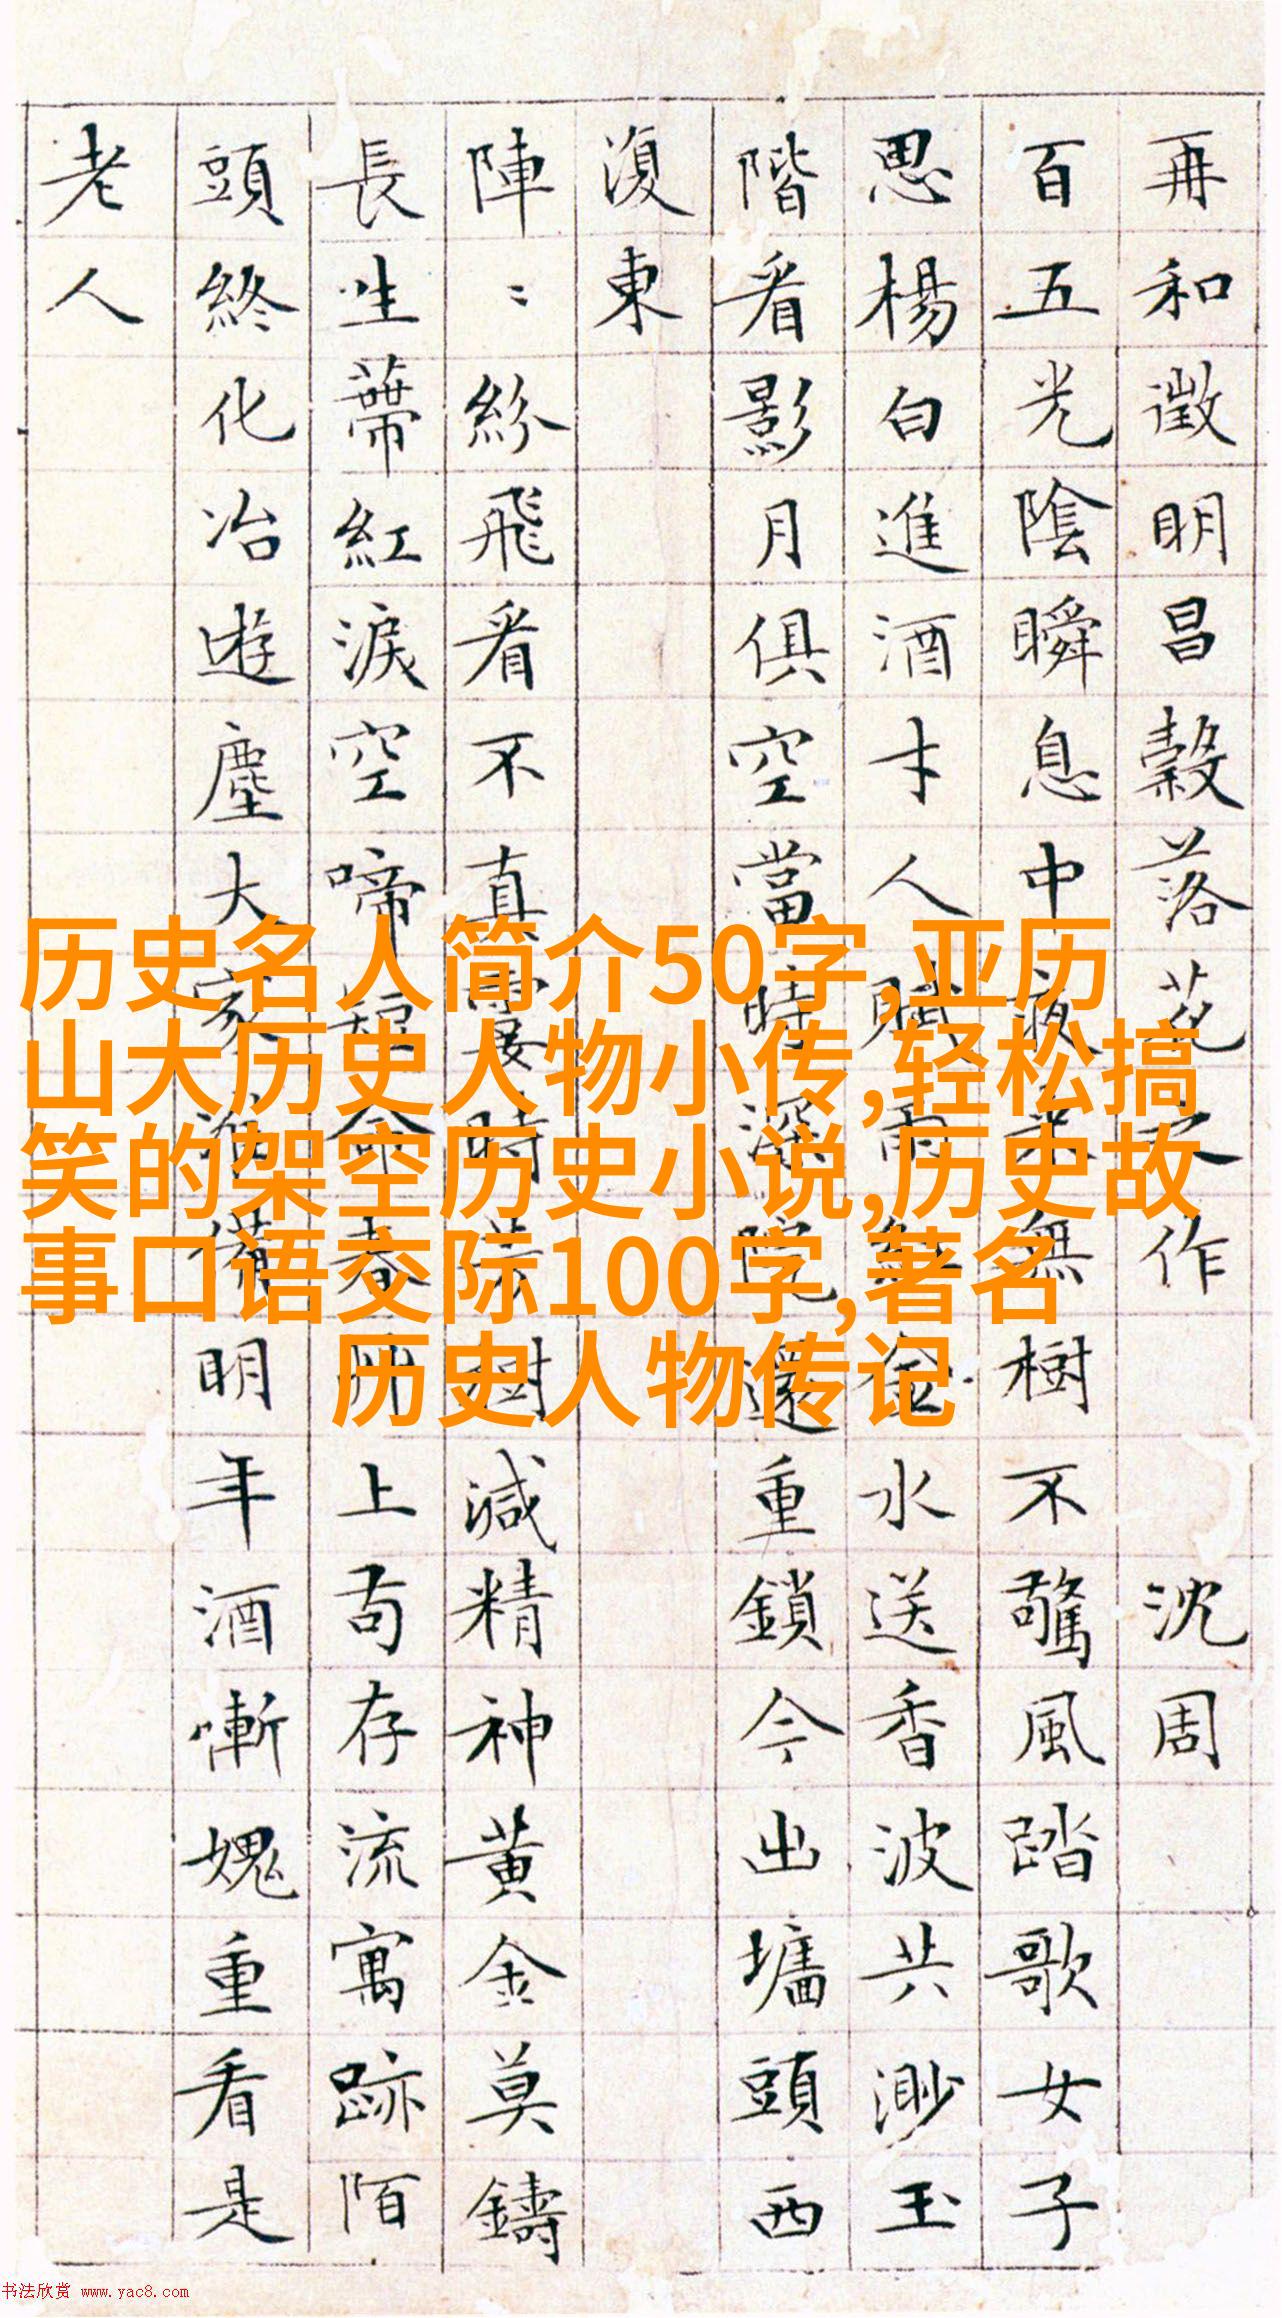 再和徵明昌穀落花之作 沈周
百五光陰瞬息中夜來無樹不驚風踏歌女子
思楊白進酒才人賦雨紅金水送香波共渺玉
階看影月俱空當時深院還重鎖今出墻頭西
復東
陣〻紛飛看不真霎時芳樹減精神黃金莫鑄
長生蔕紅淚空啼短命春艸上苟存流寓跡陌
頭終化冶遊塵大家準備明年酒慚愧重看是
老人
历史名人简介50字,亚历
山大历史人物小传,轻松搞
笑的架空历史小说,历史故
事口语交际100字,著名
历史人物传记
书法欣赏 www.yac8.com